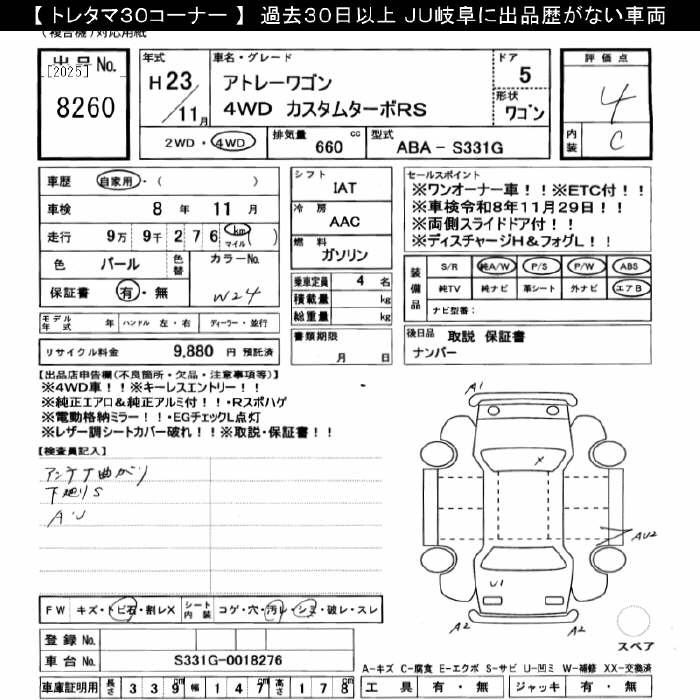 【 トレタマ30コーナー 】 過去30日以上 JU岐阜に出品歴がない車両
(複合機)対応用紙
出品No.
[2025]
8260
年式
H23/11月
車名・グレード
アトレーワゴン
4WD カスタムターボRS
ドア
5
形状
ワゴン
評価点
4
内装
C
2WD・4WD
排気量 660 cc
型式 ABA-S331G
車歴 自家用・( )
車検 8年 11月
走行 9万 9千 2 7 6 km マイル( )
色 パール 色替 カラーNo.
保証書 有・無 W24
モデル年式 年 ハンドル 左・右 ディーラー・並行
リサイクル料金 9,880 円 預託済
シフト
IAT
冷房
AAC
燃料
ガソリン
乗車定員 4 名
積載量 kg
総重量 kg
書類期限
月 日
セールスポイント
※ワンオーナー車!!※ETC付!!
※車検令和8年11月29日!!
※両側スライドドア付!!
※ディスチャージH&フォグL!!
装備品
S/R 純A/W P/S P/W ABS
純TV 純ナビ 革シート 外ナビ エアB
ナビ型番:
後日品 取説 保証書
ナンバー
【出品店申告欄(不良箇所・欠品・注意事項等)】
※4WD車!!※キーレスエントリー!!
※純正エアロ&純正アルミ付!!・Rスポハゲ
※電動格納ミラー!!・EGチェックL点灯
※レザー調シートカバー破れ!!※取説・保証書!!
【検査員記入】
アンテナ曲がり
下廻りS
AU
A1
X
AU2
U1
A2
A2
スペア
FW キズ・トビ石・割レX シート内装 コゲ・穴・汚レ・シミ・破レ・スレ
登録No.
車台No. S331G-0018276
A-キズ C-腐食 E-エクボ S-サビ U-凹ミ W-補修 XX-交換済
車庫証明用 長さ 3 3 9 cm 幅 1 4 7 cm 高さ 1 7 8 cm
工具 有・無 ジャッキ 有・無